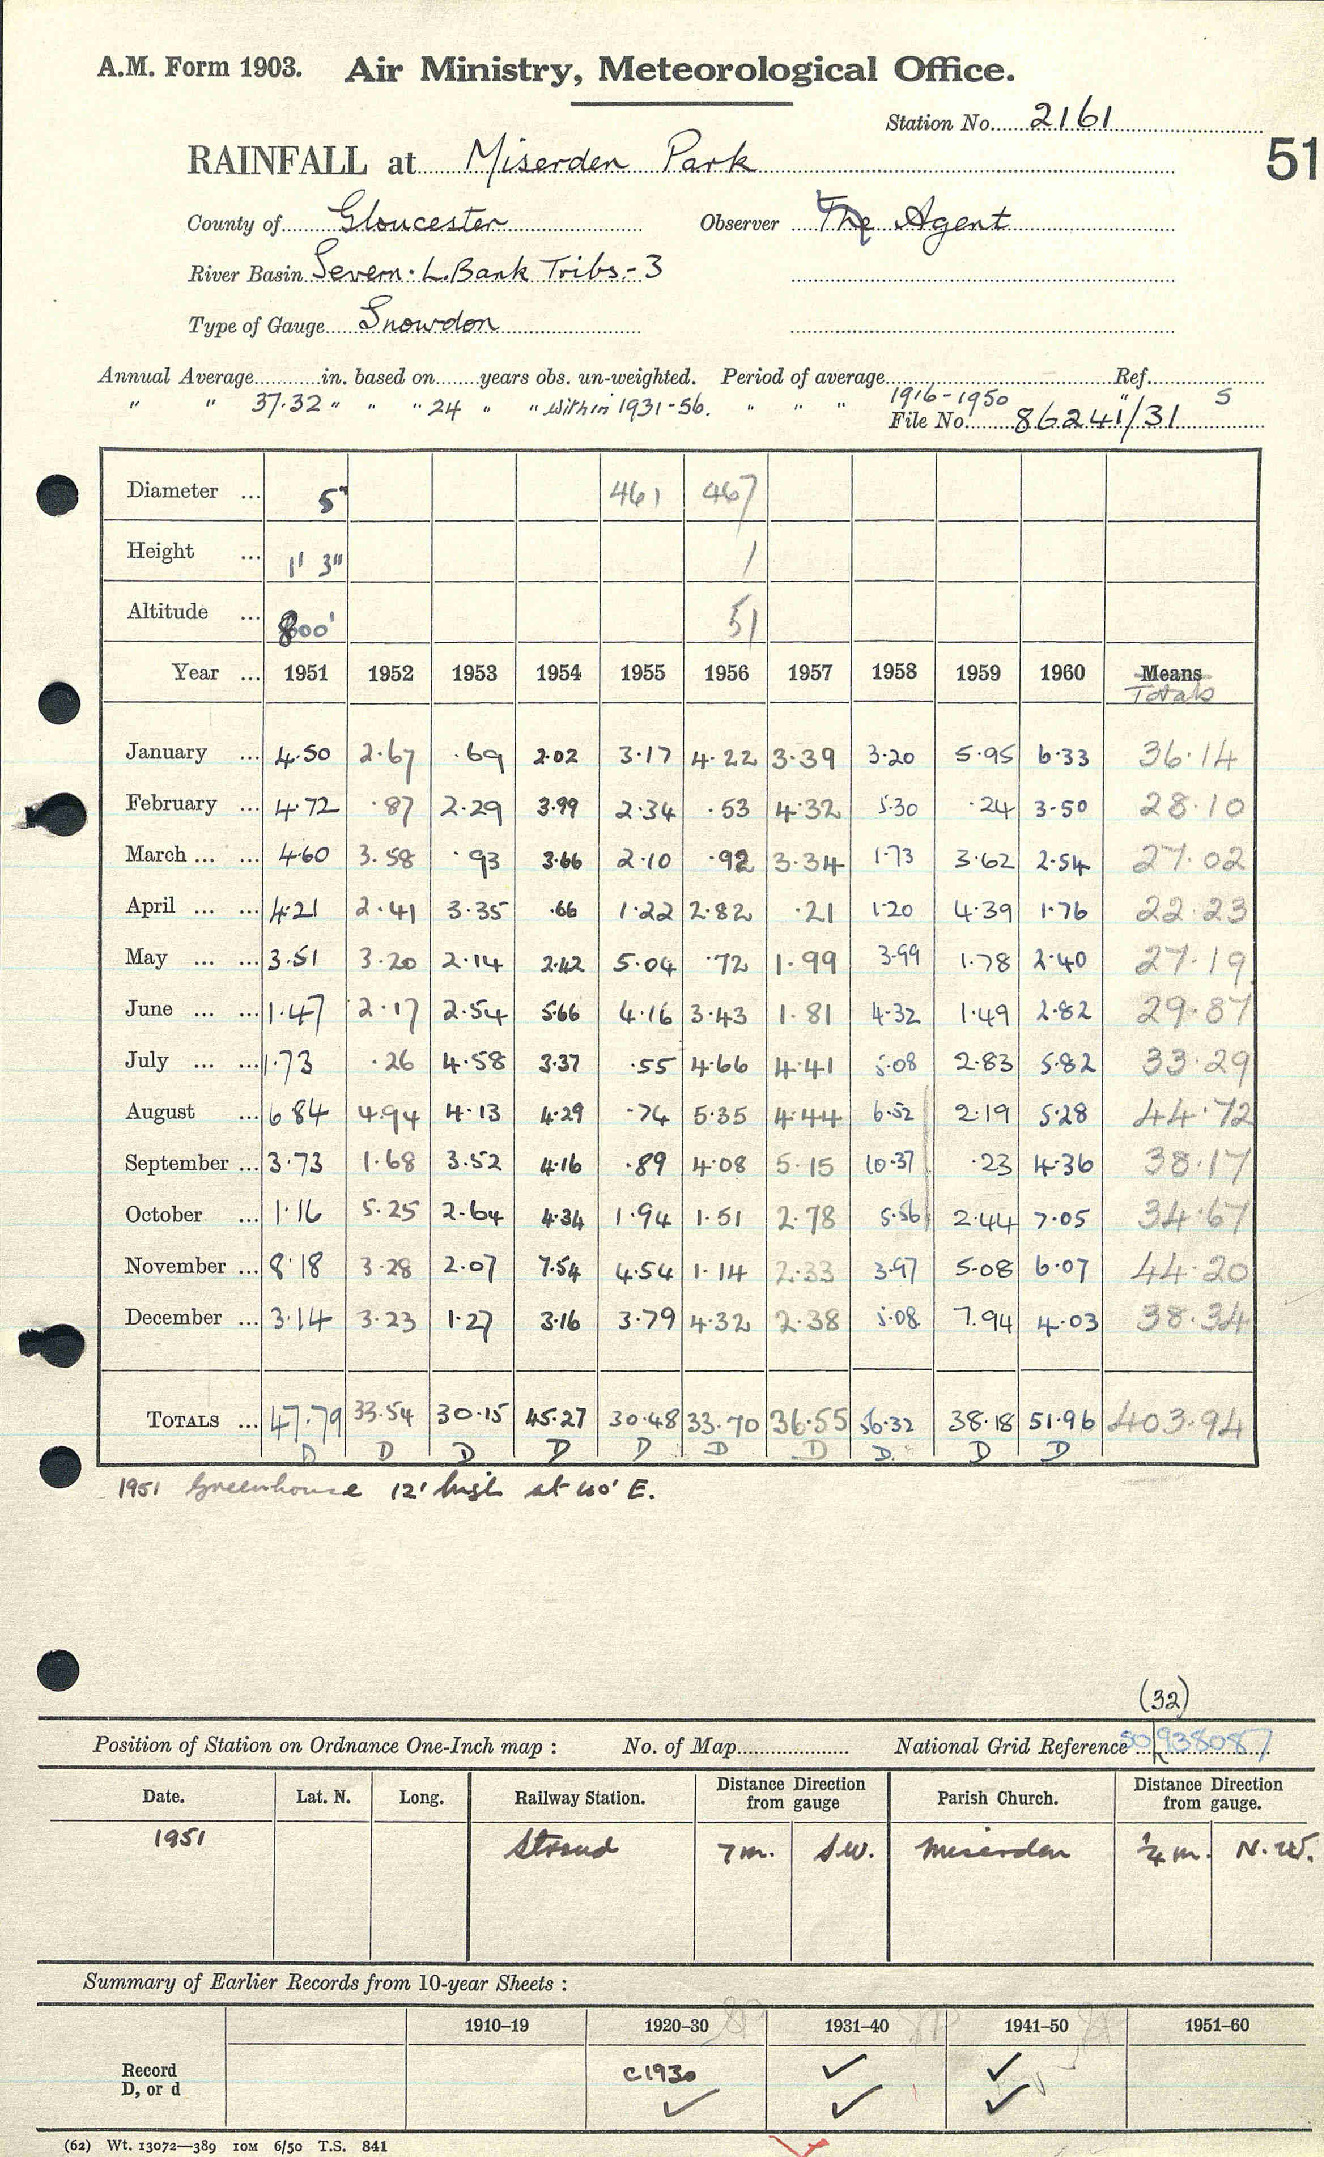 A.M. Form 1903. Air Ministry, Meteorological Office.
Station No. 2161
51
RAINFALL at Miserden Park
County of Gloucester Observer The Agent
River Basin Severn: L. Bank Tribs:- 3
Type of Gauge Snowdon
Annual Average in. based on years obs. un-weighted. Period of average Ref.
" " 37.32 " " " 24 " " within 1931-56. " " " 1916-1950 " S
File No. 86241/31
Diameter ... 5" 461 467
Height ... 1' 3" 1
Altitude ... 800' 51
Year ... 1951 1952 1953 1954 1955 1956 1957 1958 1959 1960 Means
Totals
January ... 4.50 2.67 .69 2.02 3.17 4.22 3.39 3.20 5.95 6.33 36.14
February ... 4.72 .87 2.29 3.99 2.34 .53 4.32 5.30 .24 3.50 28.10
March ... ... 4.60 3.58 .93 3.66 2.10 .92 3.34 1.73 3.62 2.54 27.02
April ... ... 4.21 2.41 3.35 .66 1.22 2.82 .21 1.20 4.39 1.76 22.23
May ... ... 3.51 3.20 2.14 2.42 5.04 .72 1.99 3.99 1.78 2.40 27.19
June ... ... 1.47 2.17 2.54 5.66 4.16 3.43 1.81 4.32 1.49 2.82 29.87
July ... ... 1.73 .26 4.58 3.37 .55 4.66 4.41 5.08 2.83 5.82 33.29
August ... 6.84 4.94 4.13 4.29 .74 5.35 4.44 6.52 2.19 5.28 44.72
September ... 3.73 1.68 3.52 4.16 .89 4.08 5.15 10.37 .23 4.36 38.17
October ... 1.16 5.25 2.64 4.34 1.94 1.51 2.78 5.56 2.44 7.05 34.67
November ... 8.18 3.28 2.07 7.54 4.54 1.14 2.33 3.97 5.08 6.07 44.20
December ... 3.14 3.23 1.27 3.16 3.79 4.32 2.38 5.08 7.94 4.03 38.34
TOTALS ... 47.79 33.54 30.15 45.27 30.48 33.70 36.55 56.32 38.18 51.96 403.94
D D D D D D D D D D
1951 Greenhouse 12' high at 40' E.
(32)
Position of Station on Ordnance One-Inch map : No. of Map National Grid Reference SO 938087
Date. Lat. N. Long. Railway Station. Distance Direction from gauge Parish Church. Distance Direction from gauge.
1951 Stroud 7 m. S.W. Miserden ¼ m. N.W.
Summary of Earlier Records from 10-year Sheets :
1910–19 1920–30 1931–40 1941–50 1951–60
Record D, or d c1930 ✓ ✓
✓ ✓ ✓
(62) Wt. 13072—389 10M 6/50 T.S. 841